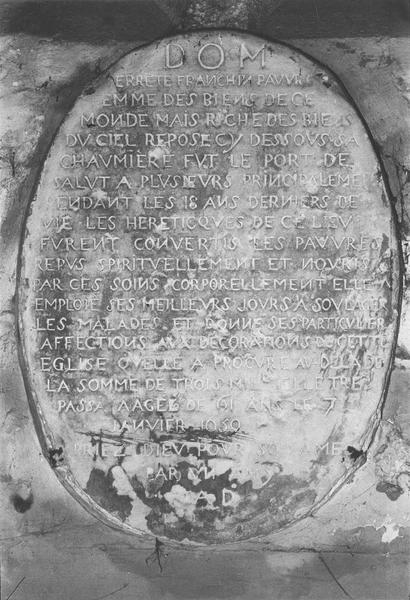 DOM
ERRETE FRANCHIN PAUVRE
EMME DES BIENS DE CE
MONDE MAIS RICHE DES BIENS
DU CIEL REPOSE CY DESSOUS SA
CHAUMIERE FUT LE PORT DE
SALUT A PLUSIEURS PRINCIPALEMENT
PENDANT LES 18 ANS DERNIERS DE
VIE LES HERETICQUES DE CE LIEU
FURENT CONVERTIS LES PAUVRES
REPUS SPIRITUELLEMENT ET NOURIS
PAR CES SOINS CORPORELLEMENT ELLE A
EMPLOIE SES MEILLEURS JOURS A SOULAGER
LES MALADES ET DONNE SES PARTICULIER
AFFECTIONS AUX DECORATIONS DE CETTE
EGLISE QUELLE A PROCURE AU DELA DE
LA SOMME DE TROIS MIL
PASSA AAGEE DE 61 ANS LE 7
JANVIER
PRIEZ DIEU POUR SON AME
PAR UN
A D